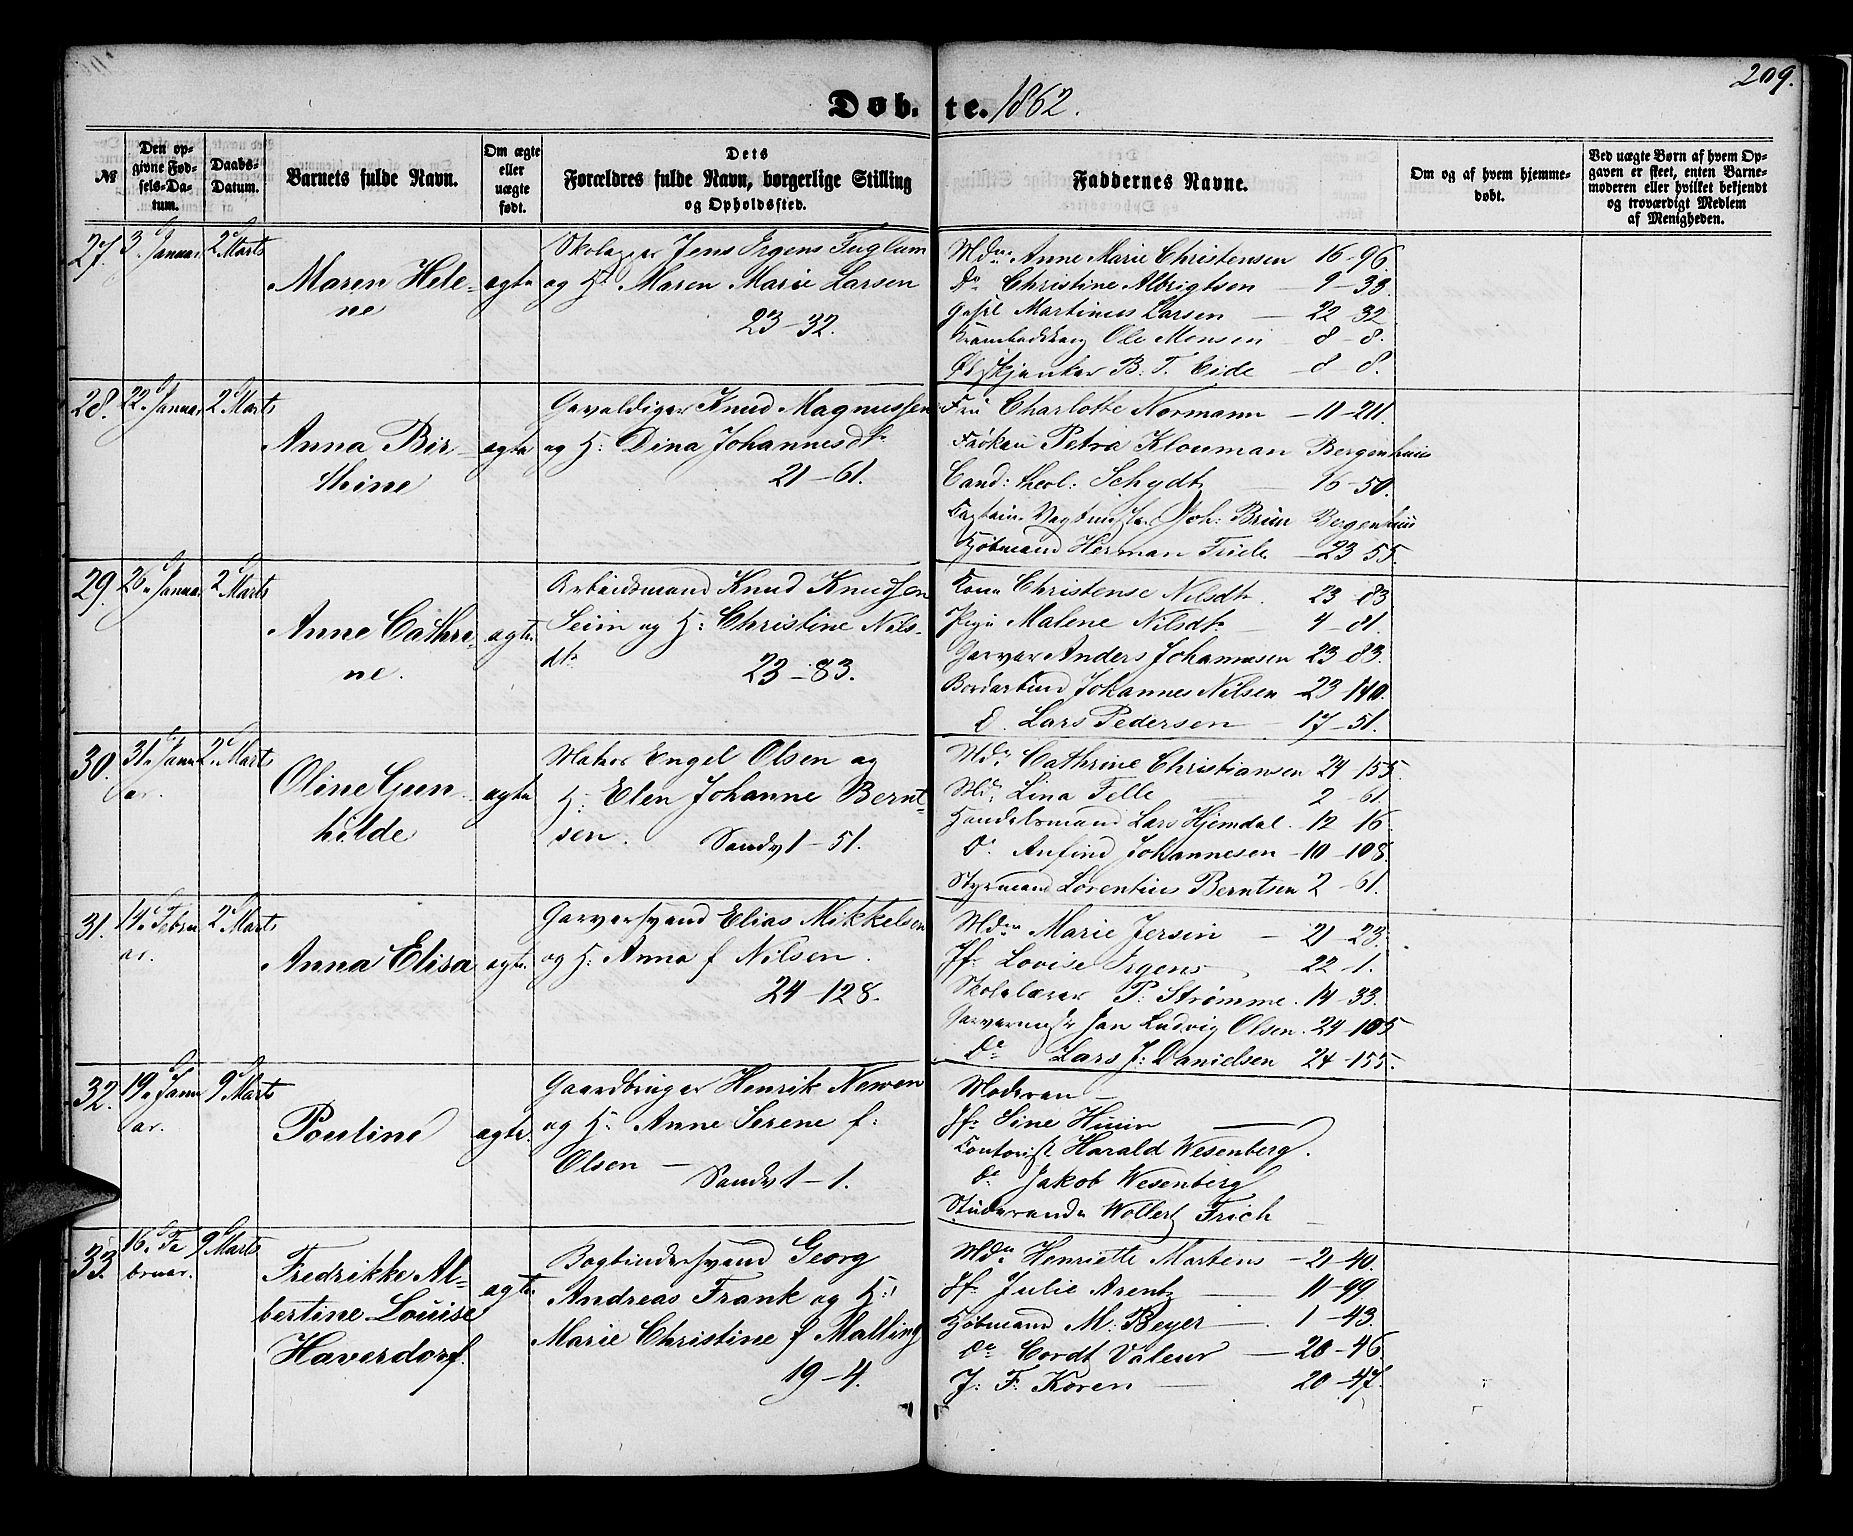 209.
Døb.te. 1862.
№
Den op-
givne Fød-
sels-Da-
tum.
Daabs-
Datum.
Barnets fulde Navn.
Om ægte
eller
uægte
født.
Dets
Forældres fulde Navn, borgerlige Stilling
og Opholdssted.
Faddernes Navne.
Om og af hvem hjemme-
døbt.
Ved uægte Børn af hvem Op-
gaven er skeet, enten Barne-
moderen eller hvilket bekjendt
og troværdigt Medlem
af Menigheden.
27. 3. Januar 2 Marts
Maren Hele-
ne
ægte
Jens Irgens Fuglum
og H. Maren Marie Larsen
23-32.
Mdm. Anne Marie Christensen 16-96.
Do Christine Albrigtsen 9-33.
Martinus Larsen 22-32.
Ole Monsen 8-8.
Ølskjænker B. T. Eide 8-8.
28. 22. Januar 2 Marts
Anna Bir-
thine
ægte
Gevaldiger Knud Magnussen
og H: Dina Johannesdtr
21-61.
Fru Charlotte Normann 11-211.
Frøken Petra Klouman Bergenhuus
Cand: theol: Schydtz 16-50.
Joh: Brun Bergenhuus
Kjøbmand Herman Friele 23-55.
29. 26. Januar 2 Marts
Anne Cathri-
ne.
ægte
Arbeidsmand Knud Knudsen
Seim og H: Christine Nils-
dtr 23-83.
Kone Christense Nilsdtr. 23-83
Pige Malene Nilsdtr 4-81.
Garver Anders Johannesen 23-83.
Johannes Nilsen 23-140.
D. Lars Pedersen 17-51.
30. 31. Janu 2 Marts
ar.
Oline Gun
hilde
ægte
Matros Engel Olsen og
H: Elen Johanne Bernt-
sen. Sandv 1-51.
Md. Cathrine Christiansen 24-155.
Md. Lina Telle 2-61.
Handelsmand Lars Hjemdal. 12-16.
Do. Anfind Johannesen 10-108.
Styrmand Lorentius Berntsen 2-61.
31. 14. Febru 2 Marts
ar.
Anna Elisa
ægte
Garversvend Elias Mikkelsen
og H: Anna f Nilsen.
24-128.
Mdm Marie Jersin 21-23.
Jfr Lovise Irgens 22-1.
Skolelærer P: Strømme. 14-33.
Garvermestr Jan Ludvig Olsen. 24-105
Do Lars J: Danielsen 24-155.
32. 19. Janu 9 Marts
ar.
Pouline
ægte.
Gaardbruger Henrik Newen
og H: Anne Serene f:
Olsen – Sandv 1-1.
Moderen –
Jfr Sine
Contorist Harald Wesenberg.
Do. Jakob Wesenberg
Studerende Wollert Frich
33. 16. Fe 9 Marts
bruar.
Fredrikke Al-
bertine Louise
Haverdorf.
ægte
Bogbindersvend Georg
Andreas Frank og H:
Marie Christine f Malling
19-4.
Mdm Henriette Martens 21-40.
Jfr Julie Arentz 11-99.
Kjøbmand M: Beyer 1-43.
Do Cordt Valeur 20-46.
J: F: Koren 20-47.